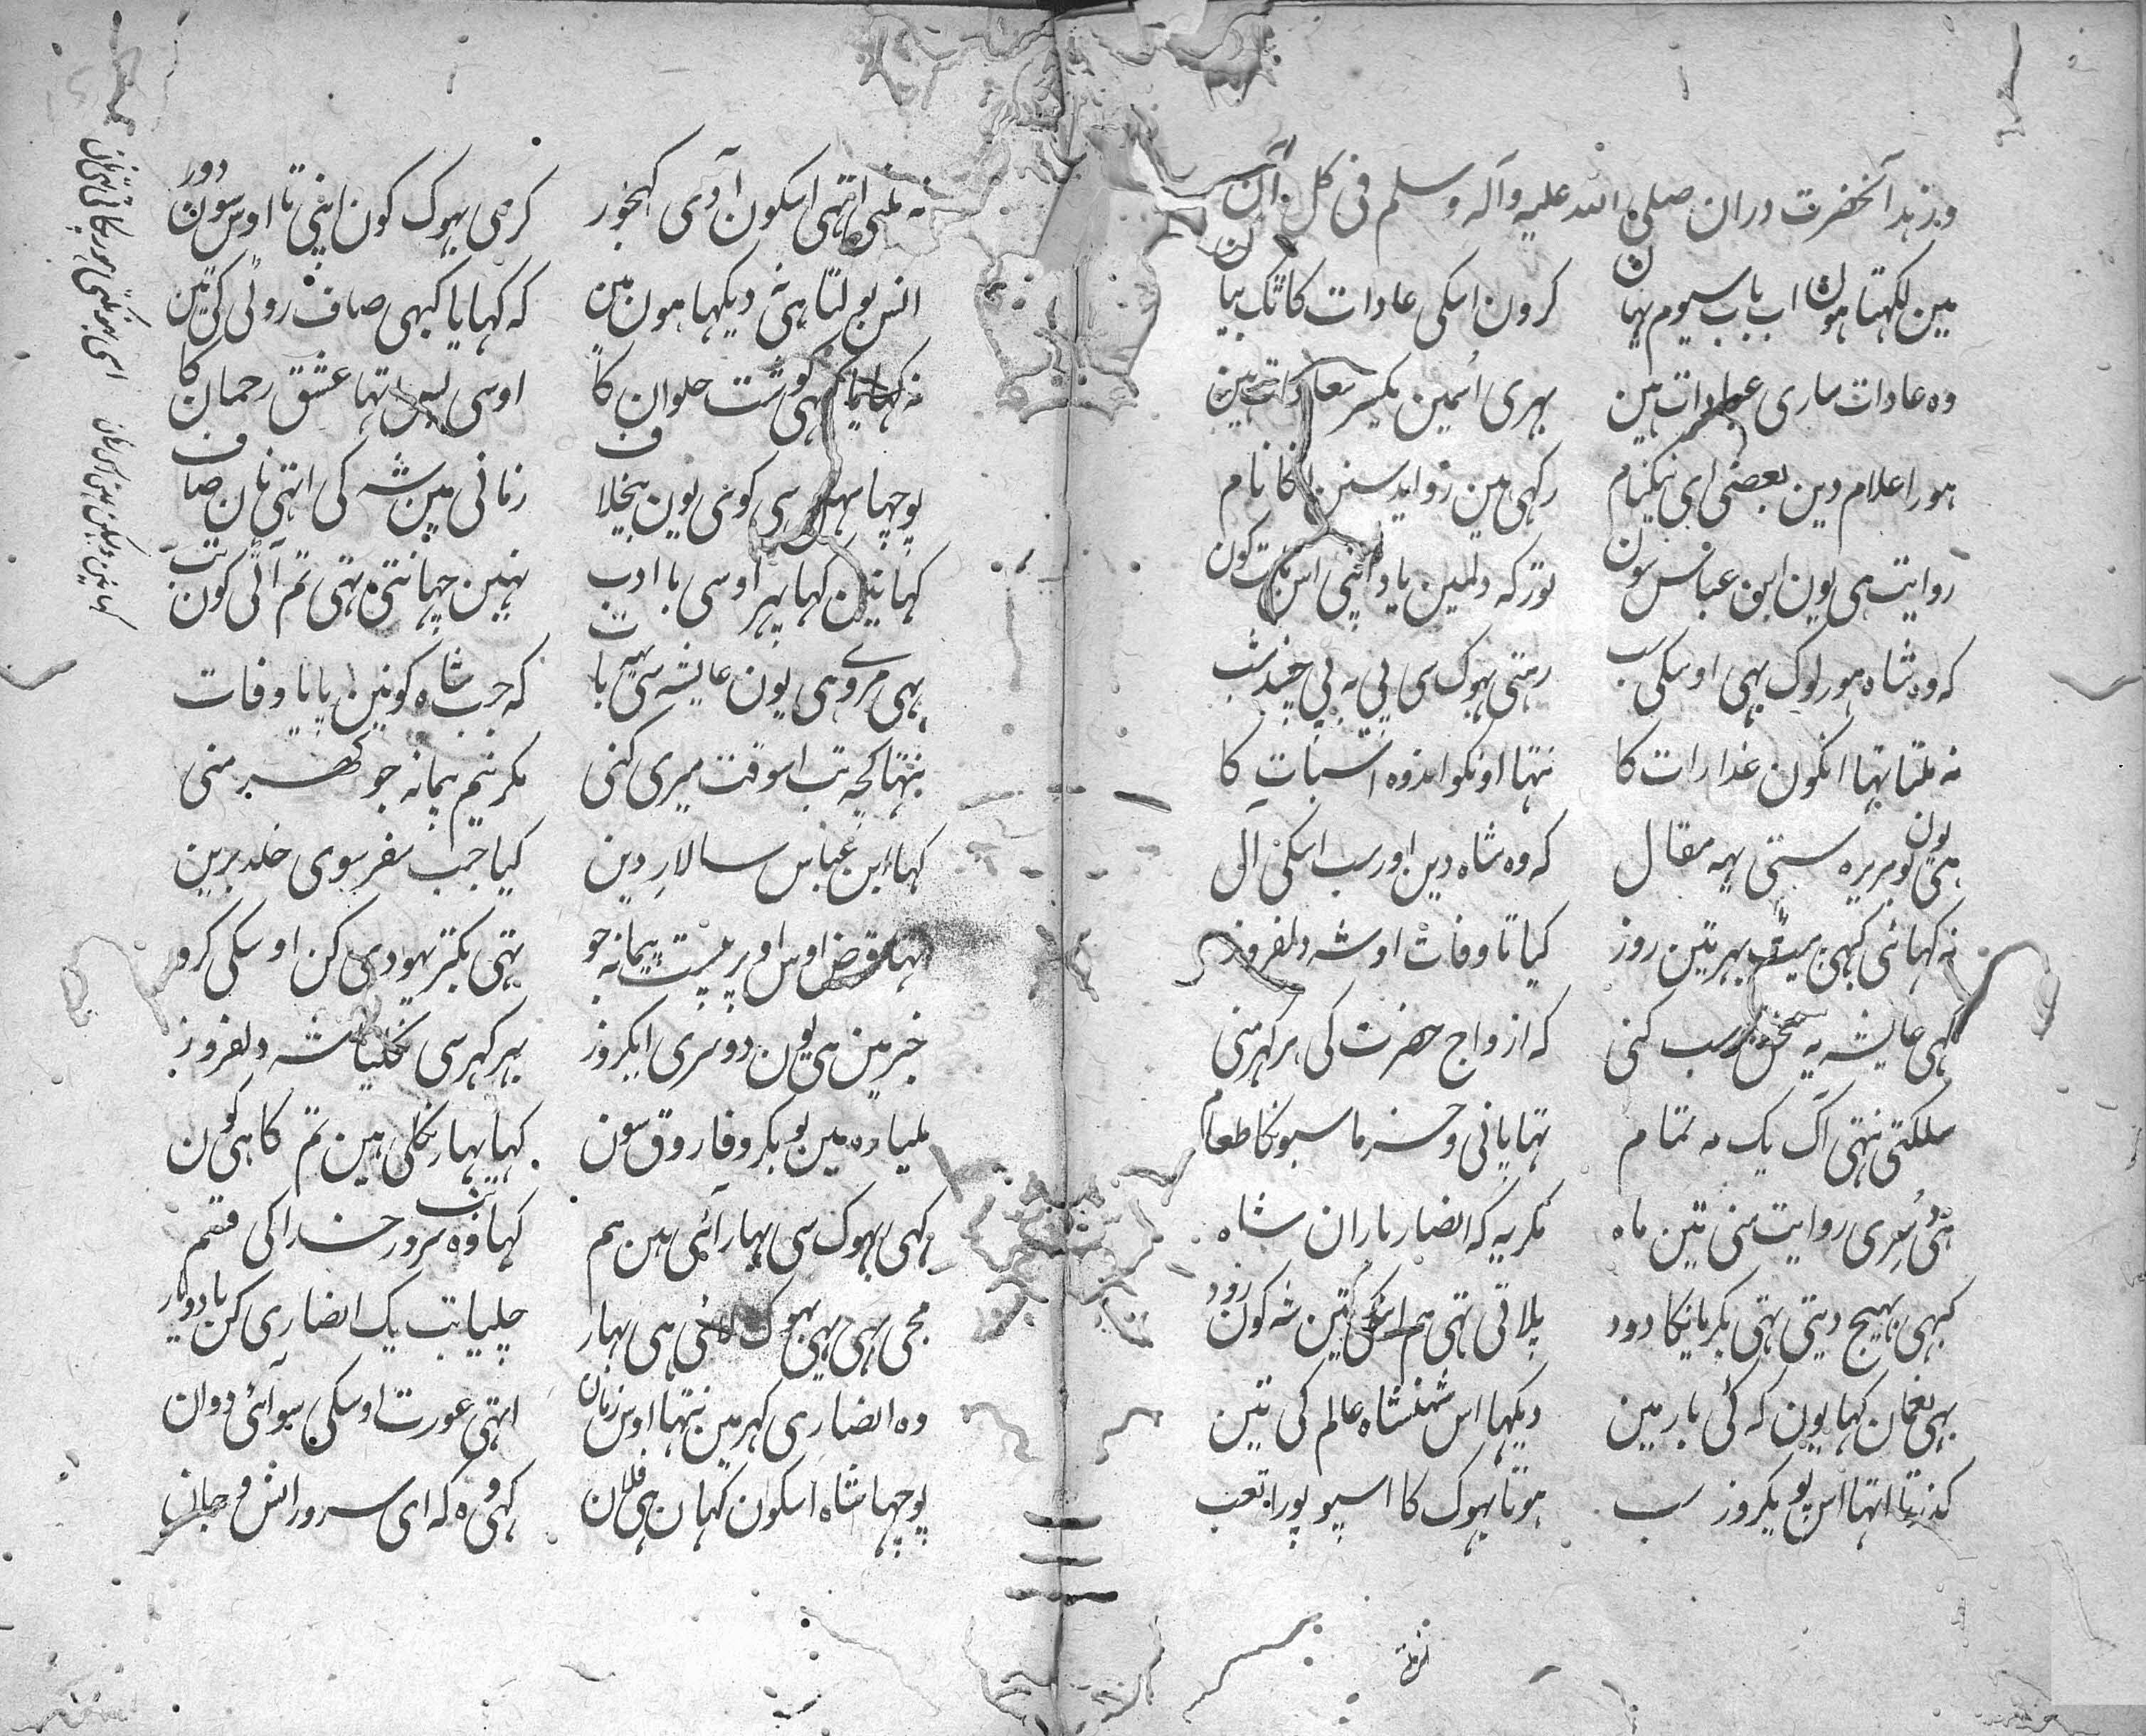 ورزہد آنحضرت دران صلی اللہ علیہ وآلہ وسلم فی کل آن
مین لکہتا ہون اب باب سیوم یہان کرون اسکی عادات کا تک بیان
وہ عادات ساری عبادات ہین بہری اُسمین یکسر سعادات ہین
ہور اعلام دین بعضی ای نیکنام رکہی ہین زواید سنن کا نام
روایت ہی یون ابن عباس سون تورکہ دلمین یاد اپنی اس بات کون
کہ وہ شاہ ہور لوک بہی اوسکی سب رہتی بہوک سی پی بہ پی چند شب
نہ ملتا تہا انکون غذا رات کا نتہا اونکو اندوہ اسبات کا
ہی بوہریرہ ستی یون یہہ مقال کہ وہ شاہ دین اور سب اسکی آل
نہ کہائی کبہی سیر بہر تین روز کیا تا وفات او شہ دلفروز
کہی عایشہ یہ سخن سب کنی کہ ازواج حضرت کی ہر کہر منی
سلکتی نتہی آک یک مہ تمام تہا پانی و خرما سبونکا طعام
ہی دُسری روایت منی تین ماہ مکر یہ کہ انصار یاران شاہ
کبہی بہیج دیتی تہی بکریانکا دود پلاتی تہی ہم شہ کون زود
بہی نعمان کہا یون کہ کئی بار مین دیکہا اس شہنشاہ عالم کی تین
کذرتا اتہا اس پو یکروز سب ہوتا بہوک کا اسپو پورا تعب
نہ ملتی اتہی اسکون آدی کہجور کرمی بہوک کون اپنی تا اوس سون دور
انس بولتا ہی نہ دیکہا ہون مین کہ کہایا کبہی صاف روٹی کی تین
نہ کہایا کبہی کوشت حلوان کا اوسی لبس اتہا عشق رحمان کا
پوچہا سہل سی کوئی یون بیخلاف زمانی مین شہ کی اتہی نان صاف
کہا نین کہا پہر اوسی با ادب نہین چہانتی تہی تم آٹی کون تب
بہی مروی ہی یون عایشہ سی یہہ بات کہ جب شاہ کونین پایا وفات
نتہا کچہ تب اسوقت میری کنی مکر نیم پیمانہ جو کہر منی
کہا ابن عباس سالار دین کیا جب سفر سوی خلد برین
تہا قرض اوس اوپر بیست پیمانہ جو تہی بکتر یہودی کن اوسکی کرو
خبر مین ہی یون دوسری ایکروز بہر کہر سی نکلیا شہ دلفروز
ملیا رہ مین بوبکر و فاروق سون کہا بہار نکلی ہین تم کاہی کون
کہی بہوک سی بہار آئی ہین ہم کہا تب وہ سرور خدا کی قسم
مجی بہی یہی بہوک لائی ہی بہار چلیا تب یک انصاری کن با دو یار
وہ انصاری کہر مین نتہا اوس زمان اتہی عورت اوسکی سو آئی دوان
پوچہا شاہ اسکون کہان ہی فلان کہی وہ کہ ای سرور انس و جان